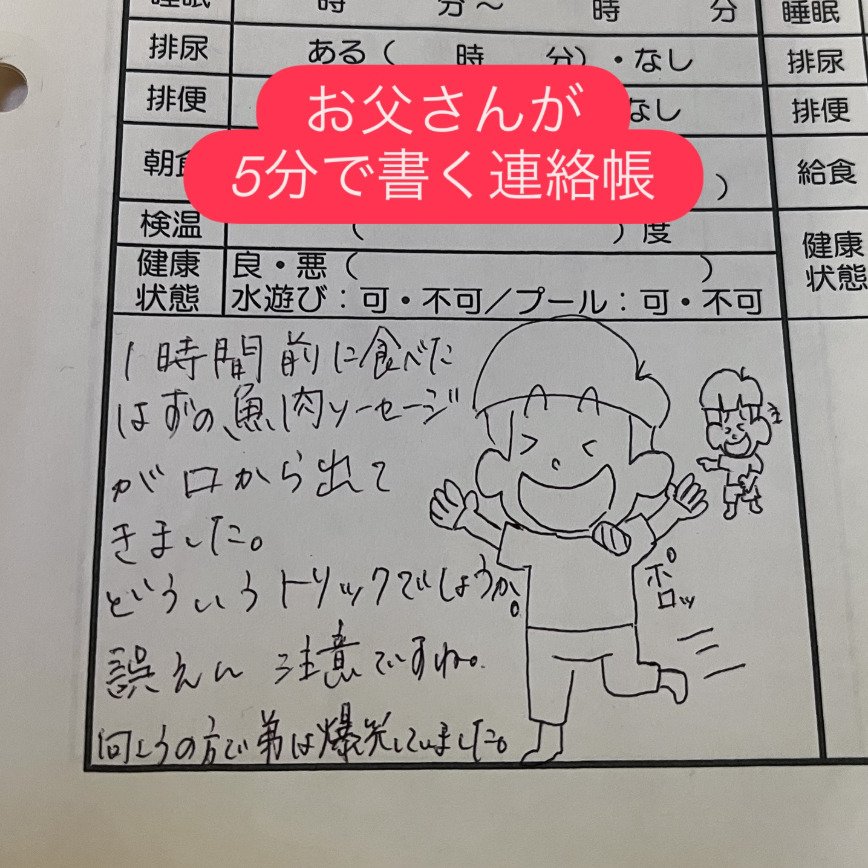 睡眠 時 分〜 時 分 睡眠
排尿 ある( 時 分)・なし 排尿
排便 なし 排便
お父さんが
5分で書く連絡帳
朝食 ) 給食
検温 ( )度
健康状態 良・悪( ) 健康状態
水遊び:可・不可/プール:可・不可
1時間前に食べた
はずの魚肉ソーセージ
が口から出て
きました。
どういうトリックでしょうか。
誤えん注意ですね。
向こうの方で弟は爆笑していました。
ポロッ